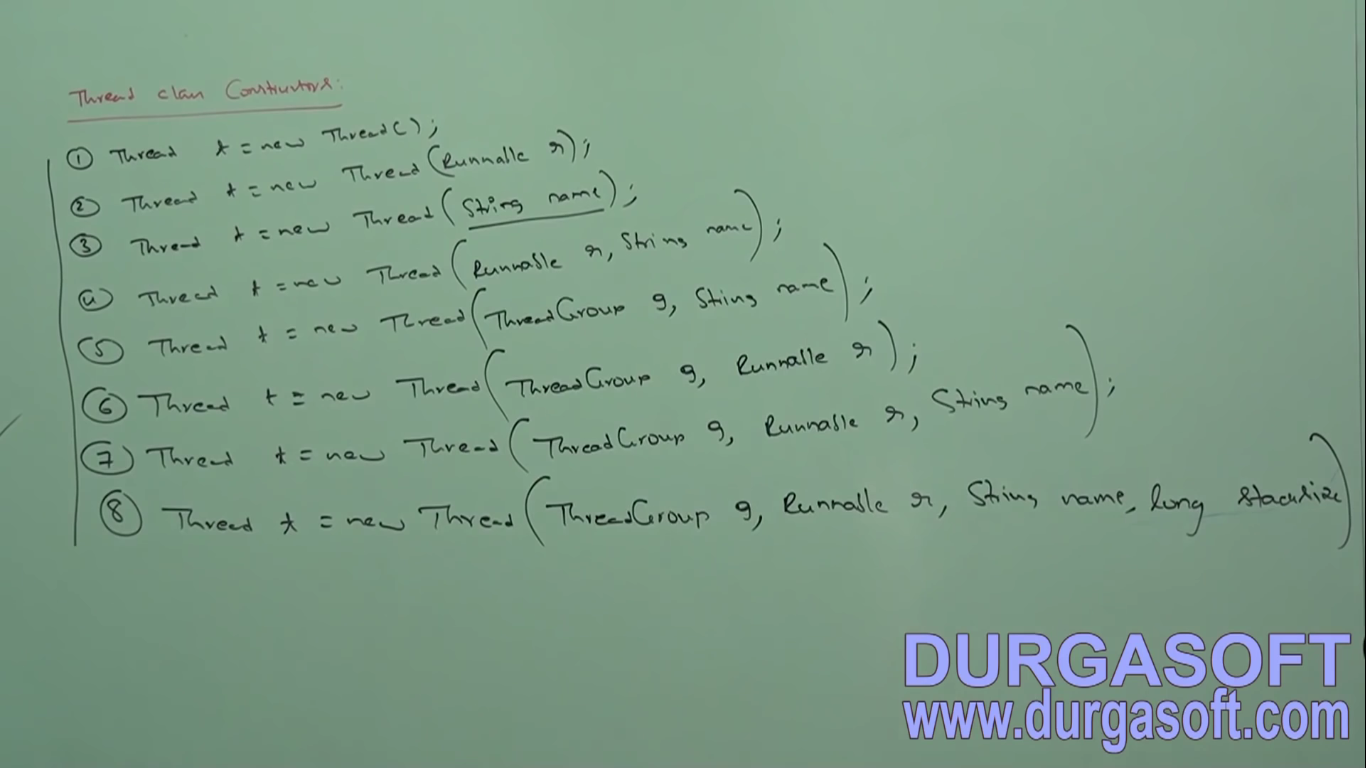 Thread class Constructors:
① Thread t = new Thread();
② Thread t = new Thread(Runnable r);
③ Thread t = new Thread(String name);
④ Thread t = new Thread(Runnable r, String name);
⑤ Thread t = new Thread(ThreadGroup g, String name);
⑥ Thread t = new Thread(ThreadGroup g, Runnable r);
⑦ Thread t = new Thread(ThreadGroup g, Runnable r, String name);
⑧ Thread t = new Thread(ThreadGroup g, Runnable r, String name, long stacksize)
DURGASOFT
www.durgasoft.com